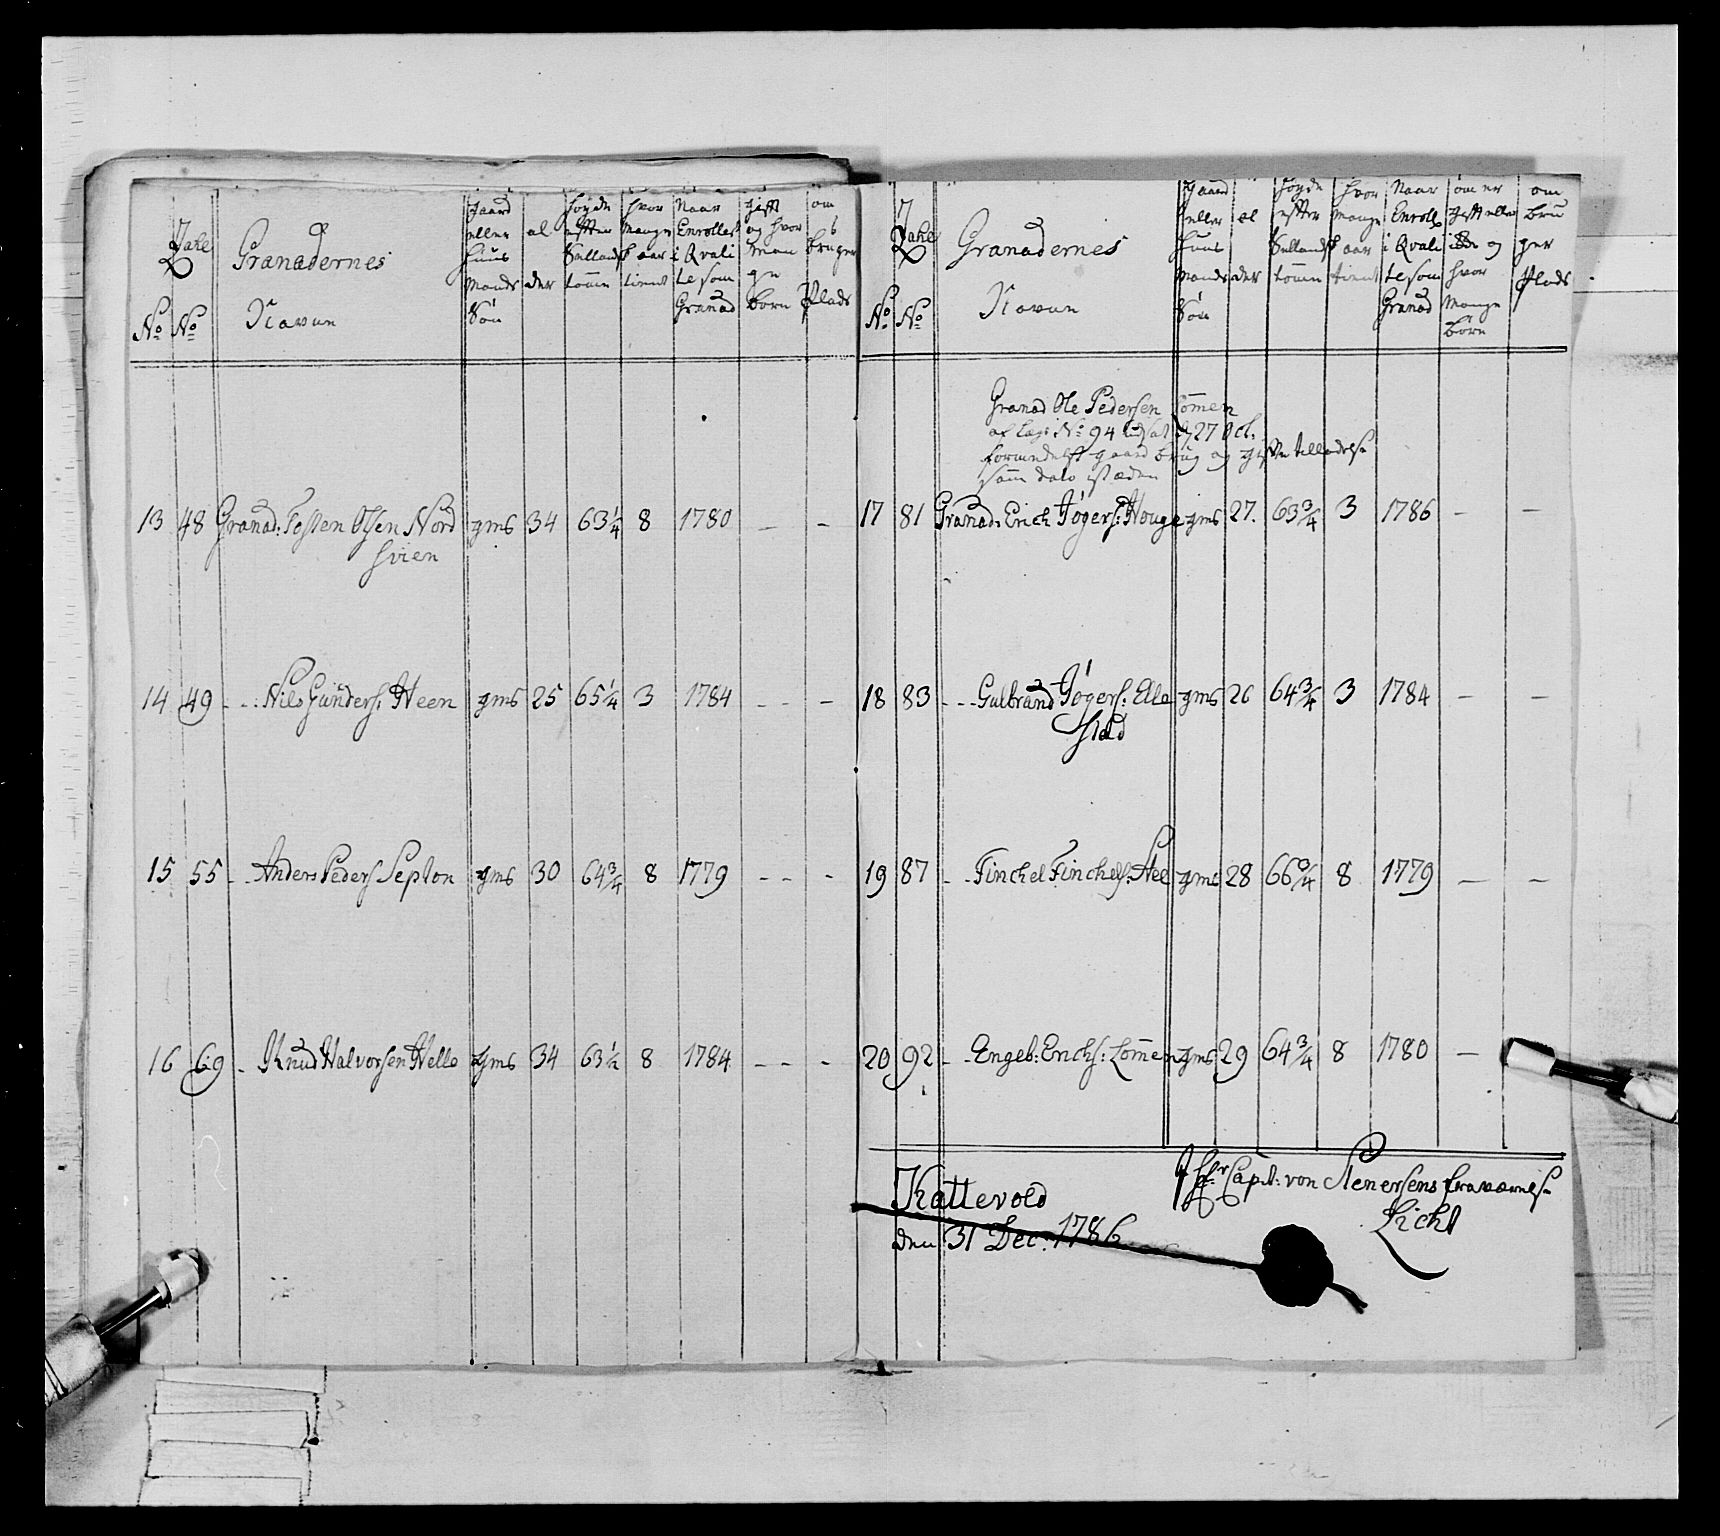 Lahl
No No
Granadernes
Navun
Gaard eller Huus Mands Søn
al der
Høyde effter Sellandsk tomme
Hvor mange aar tient
Naar Enrollet i Qvalitte som Granad
Gift og hvor man ge børn
om bruger Plads
13 48 Granad: Tosten Olsen Nord gms 34 63¼ 8 1780 — –
svien
14 49 - - Nils Gunders: Heen gms 25 65¼ 3 1784 - - –
15 55 - - Anders Peders: Septon gms 30 64¾ 8 1779 - - -
16 69 - Knud Halvorsen Helle gms 34 63½ 8 1784 - - -
Lahl
No No
Granadernes
Navun
Gaard eller Huus Mands Søn
al der
Høyde effter Sellandsk tomme
Hvor mange aar tient
Naar Enroll i Qvalite som Granad
om er gift eller og hvor mange børn
om bruger Plads
Granad Ole Pedersen Lomen
af Lægs No 94 udsat d 27 Oct.
formedelst gaard brug og gifte tilladelse
17 81 Granad: Erich Jøgers: Houge gms 27. 63¾ 3 1786 – —
18 83 - - Gulbrand Jøgers: Elle gms 26 64¾ 3 1784 — —
stad
19 87 - - Finchel Finchels: Hee gms 28 66¾ 8 1779 — —
20 92 - - Engeb: Erichs: Lomen gms 29 64¾ 8 1780 —
Kattevold
den 31 Dec: 1786
I Hr Capit: von fraværelse
Licht